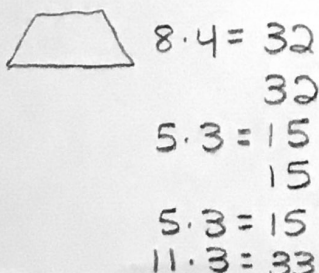 8·4 = 32
32
5·3 = 15
15
5·3 = 15
11·3 = 33